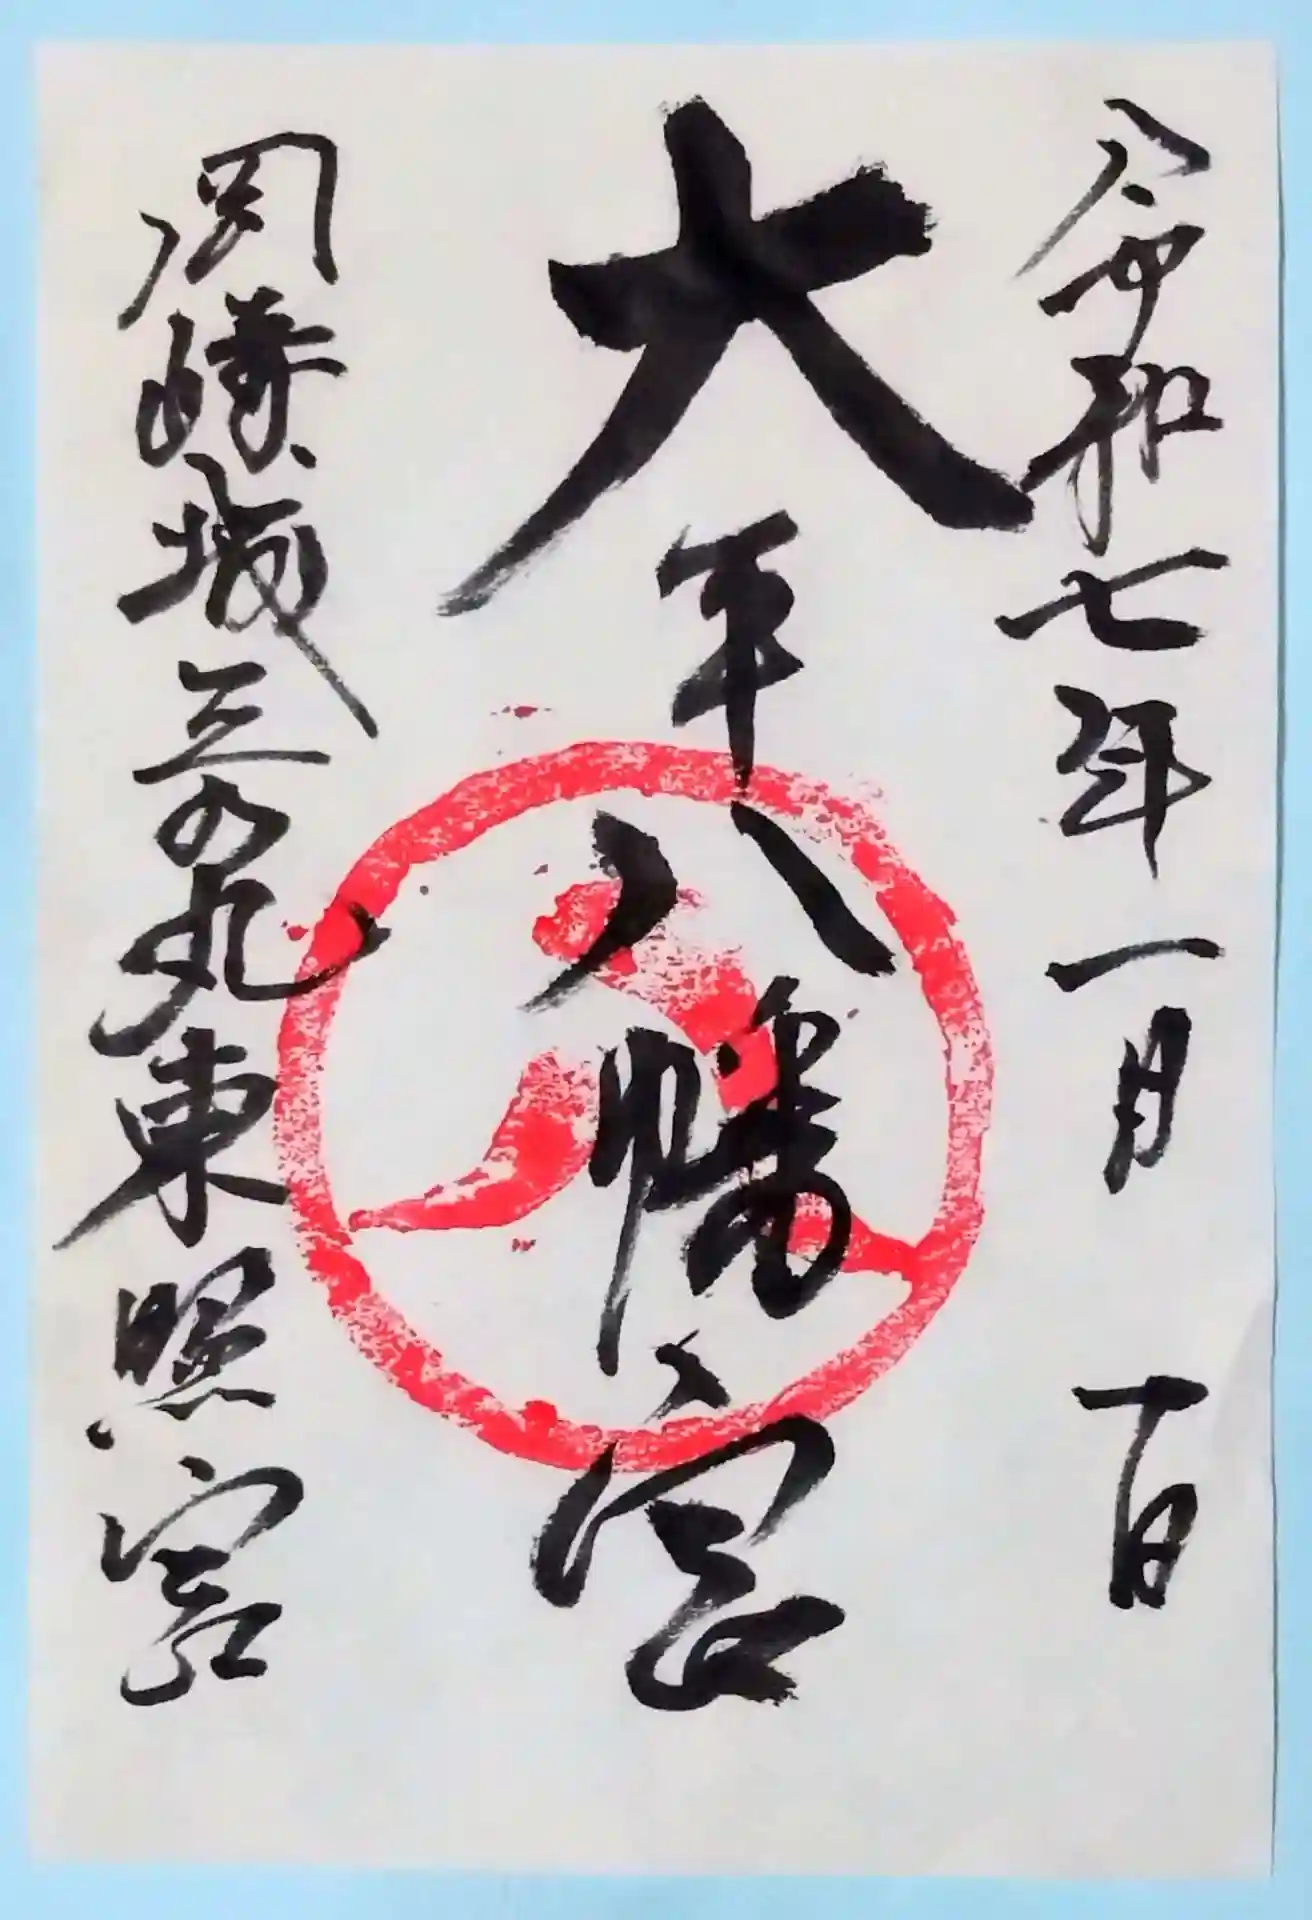 令和七年一月 十日
大平八幡宮
岡崎城三の丸東照宮